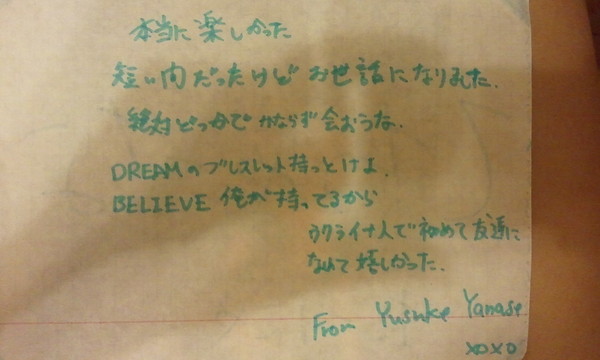 本当に楽しかった
短い間だったけどお世話になりました.
絶対どっかでかならず会おうな.
DREAMのブレスレット持っとけよ.
BELIEVE 俺が持ってるから
ウクライナ人で初めて友達に
なれて嬉しかった.
From Yusuke Yanase
xoxo